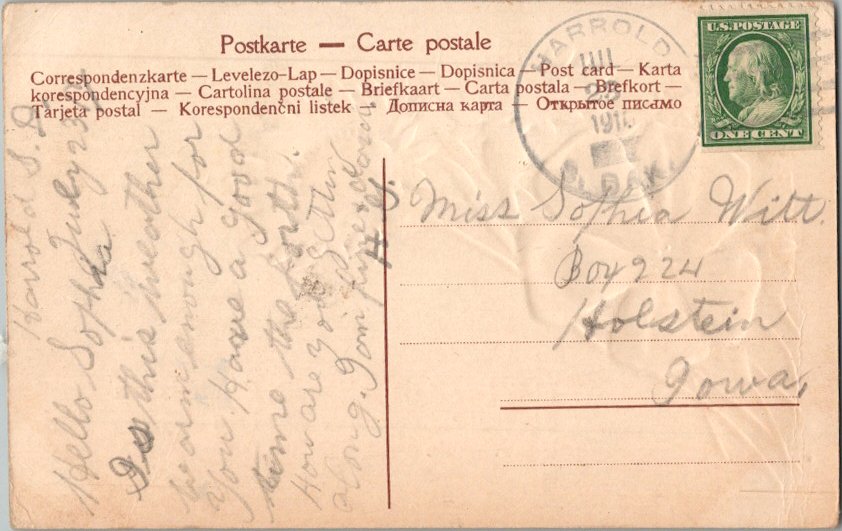 Postkarte — Carte postale
Correspondenzkarte — Levelezo-Lap — Dopisnice — Dopisnica — Post card — Karta
korespondencyjna — Cartolina postale — Briefkaart — Carta postala — Brefkort —
Tarjeta postal — Korespondenčni listek — Дописна карта — Открытое писмо
HARROLD
JUL
191
S. DAK.
U.S. POSTAGE
ONE CENT
Miss Sophia Witt.
Box 224
Holstein
Iowa,
Harrold S. D.
July 23
Hello Sophia
Is this weather
warm enough for
you. Have a good
time the forth.
How are you getting
along. I am fine & dandy
H. G.